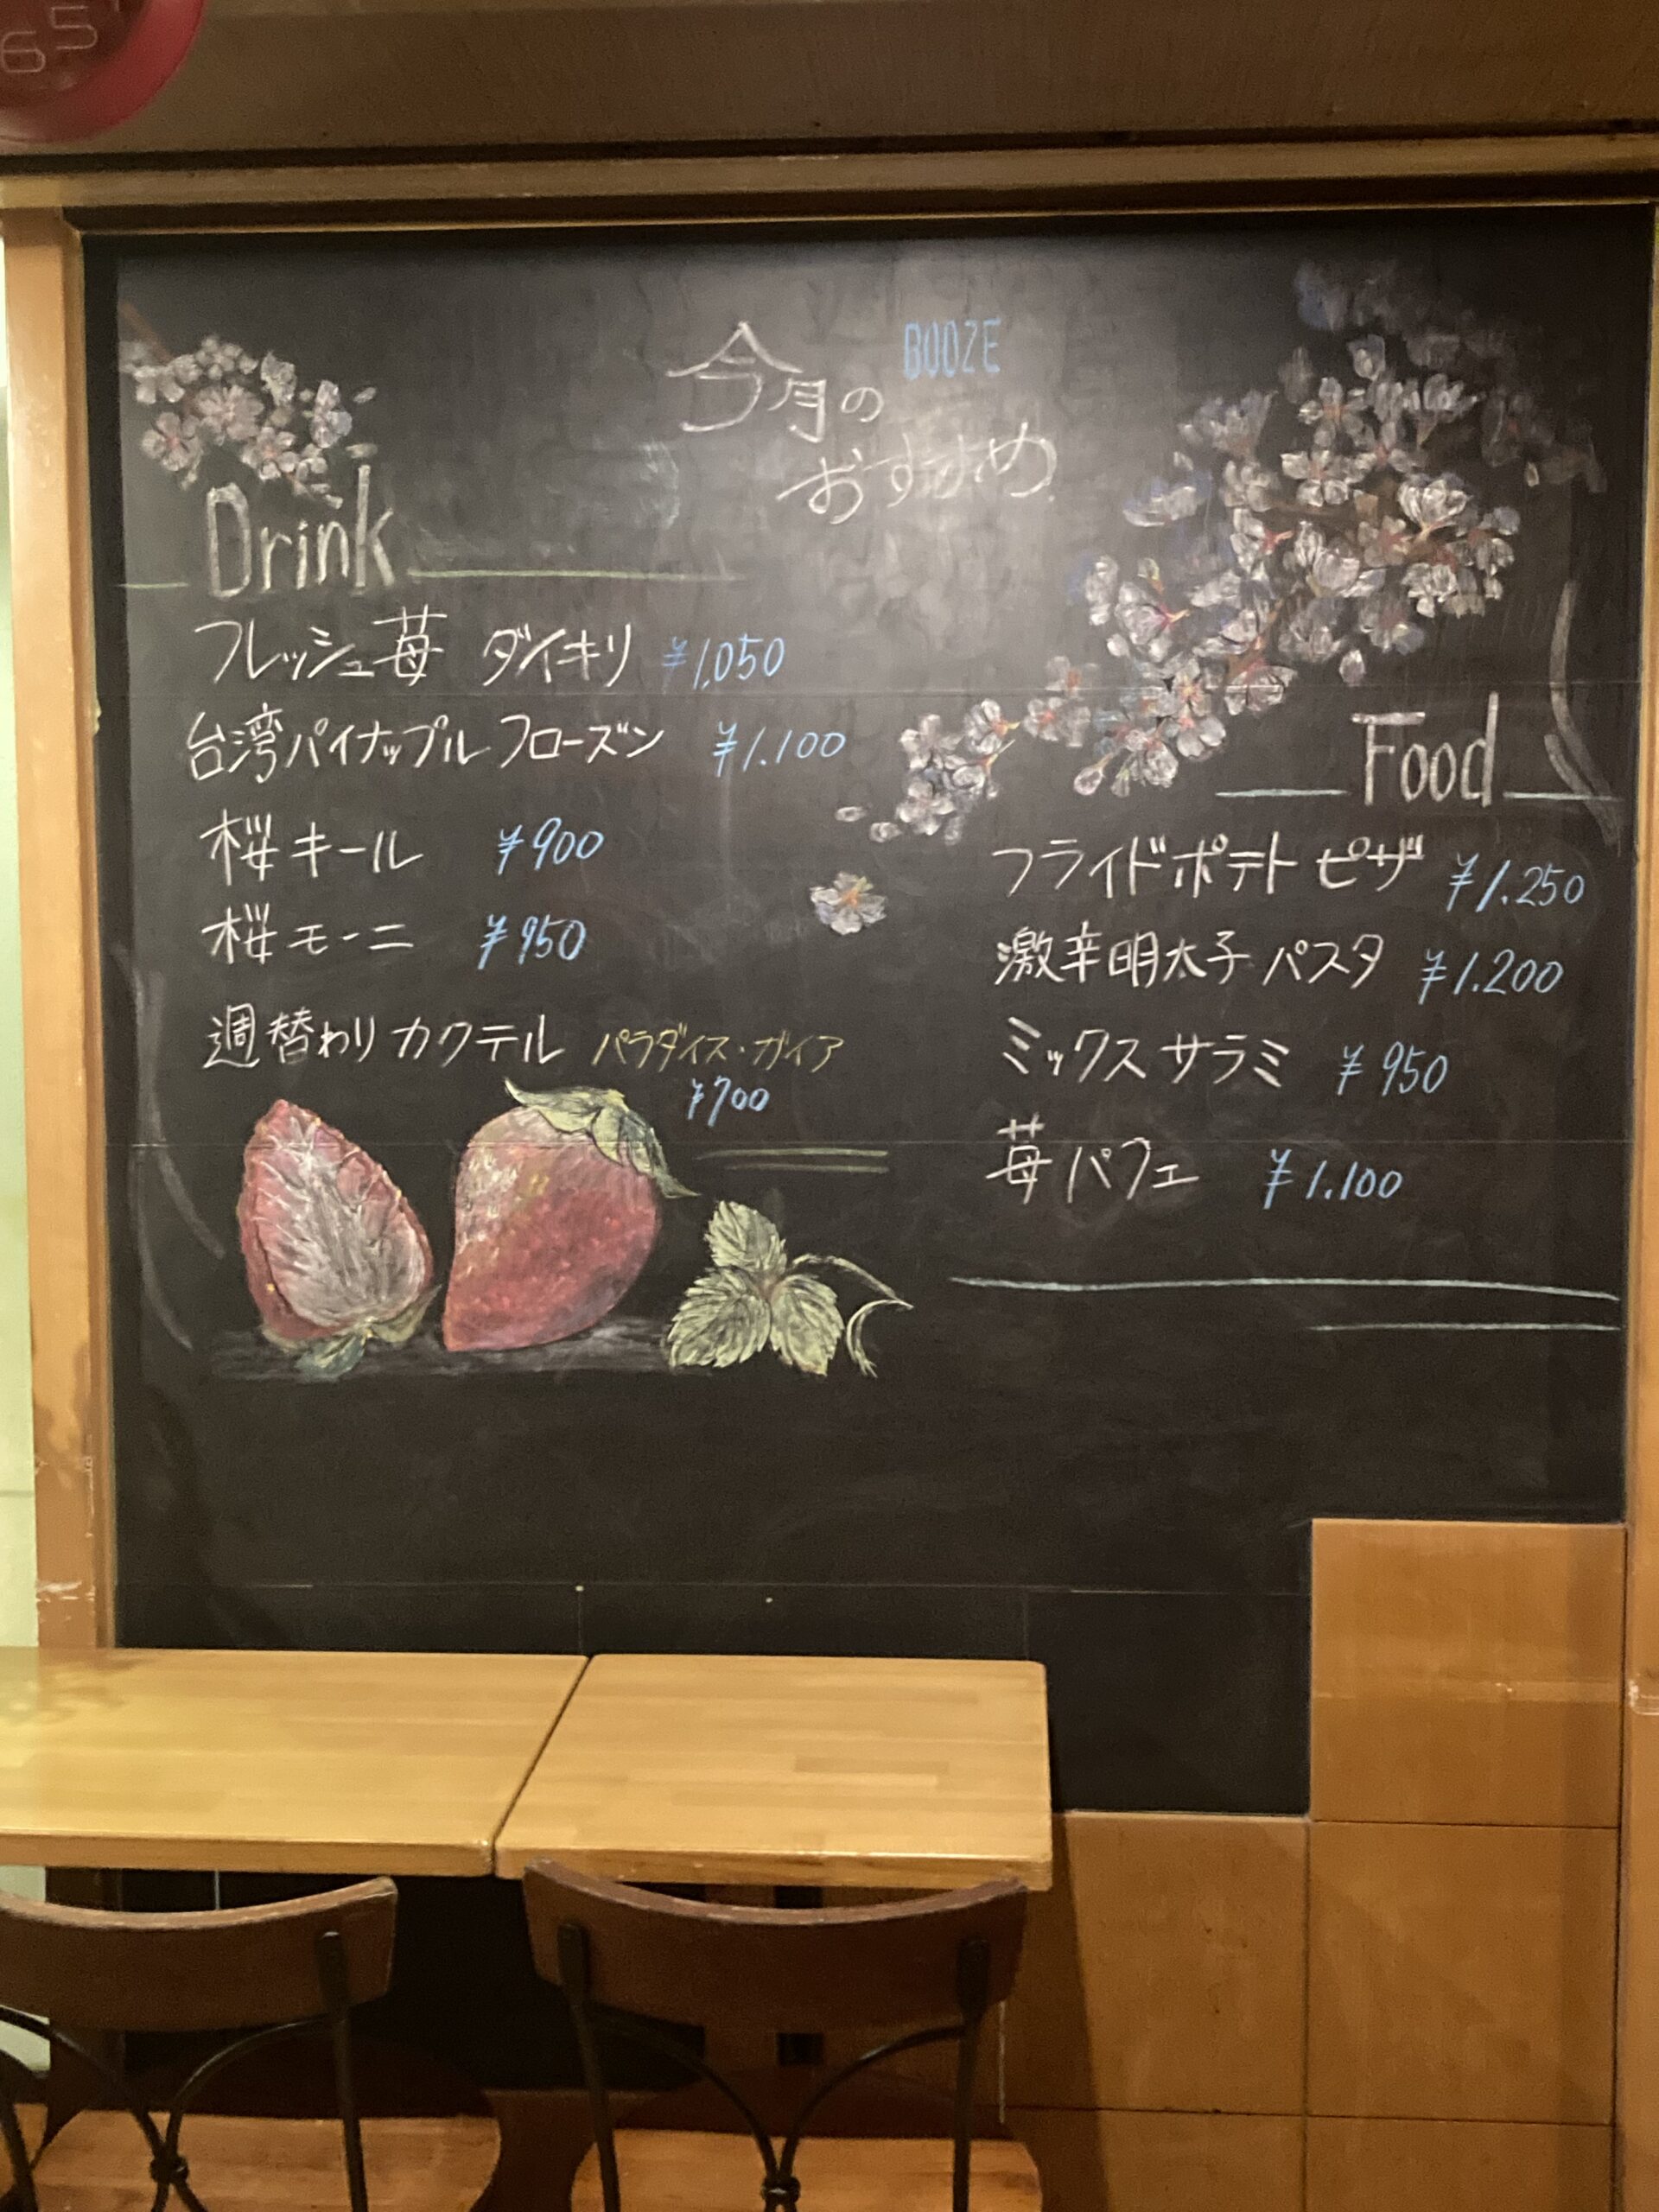 65
BOOZE
今月の
おすすめ
Drink
フレッシュ苺 ダイキリ ¥1,050
台湾パイナップル フローズン ¥1.100
桜キール ¥900
桜モーニ ¥950
週替わりカクテル パラダイス・ガイア
¥700
Food
フライドポテト ピザ ¥1.250
激辛明太子 パスタ ¥1.200
ミックスサラミ ¥950
苺パフェ ¥1.100